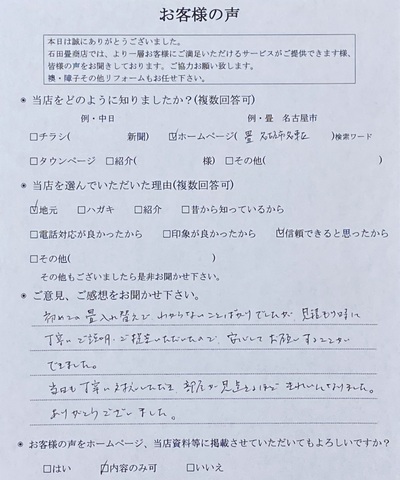 お客様の声
本日は誠にありがとうございました。
石田畳商店では、より一層お客様にご満足いただけるサービスがご提供できます様、
皆様の声をお聞きしております。ご協力お願い致します。
襖・障子その他リフォームもお任せ下さい。
＊当店をどのように知りましたか？(複数回答可)
例・中日　例・畳 名古屋市
□チラシ(　新聞) ☑ホームページ(畳 名古屋市)検索ワード
□タウンページ □紹介(　様) □その他(　)
＊当店を選んでいただいた理由(複数回答可)
☑地元 □ハガキ □紹介 □昔から知っているから
□電話対応が良かったから □印象が良かったから ☑信頼できると思ったから
□その他(　)
その他もございましたら是非お聞かせ下さい。
＊ご意見、ご感想をお聞かせ下さい。
初めての畳入れ替えで、わからないことばかりでしたが、見積もり時に
丁寧にご説明・ご提案いただいたので、安心してお願いすることが
できました。
当日も丁寧に対応いただき、部屋が見違えるほどきれいになりました。
ありがとうございました。
＊お客様の声をホームページ、当店資料等に掲載させていただいてもよろしいですか？
□はい ☑内容のみ可 □いいえ